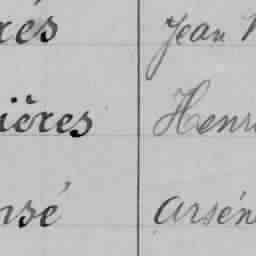 rés Jean
ières Henri
nsé Arsén